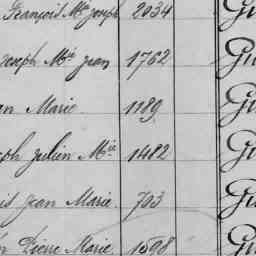 François Mie Joseph 2034 Gu
Joseph Mie Jean 1762 Gu
Marie 1189 Gu
Julien Mie 1482 Gu
Jean Marie 703 Gu
Pierre Marie 1598 Gu